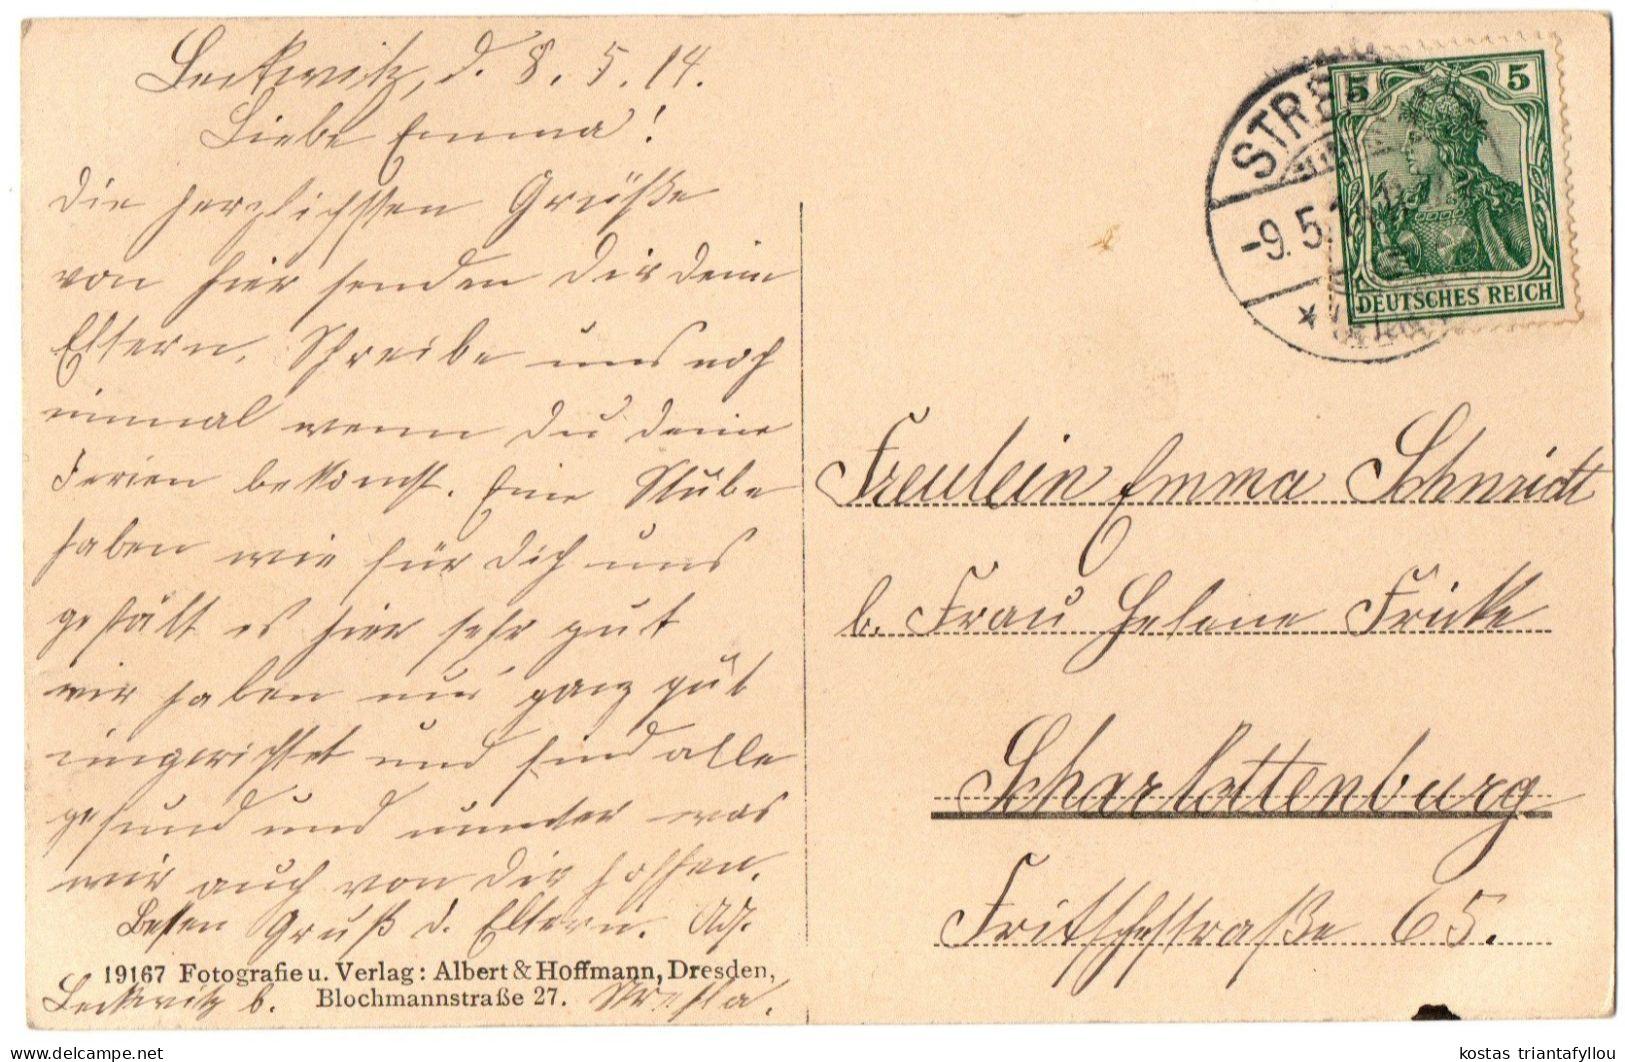 Leckwitz, d. 8. 5. 14.
Liebe Emma!
die herzlichsten Grüße
von hier senden dir deine
Eltern. Schreibe uns noch
einmal wenn du deine
Ferien bekomst. Eine Stube
haben wir für dich uns
gefält es hier sehr gut
wir haben uns ganz gut
eingerichtet und sind alle
gesund und munter was
wir auch von dir hoffen.
Besten Gruß d. Eltern. Adr.
Leckwitz b. Strehla.
19167 Fotografie u. Verlag: Albert & Hoffmann, Dresden,
Blochmannstraße 27.
STRE
-9. 5. 14
5 5
DEUTSCHES REICH
Freulein Emma Schmidt
b. Frau Helene Fricke
Scharlottenburg
Fritschestraße 65.
delcampe.net
kostas triantafyllou